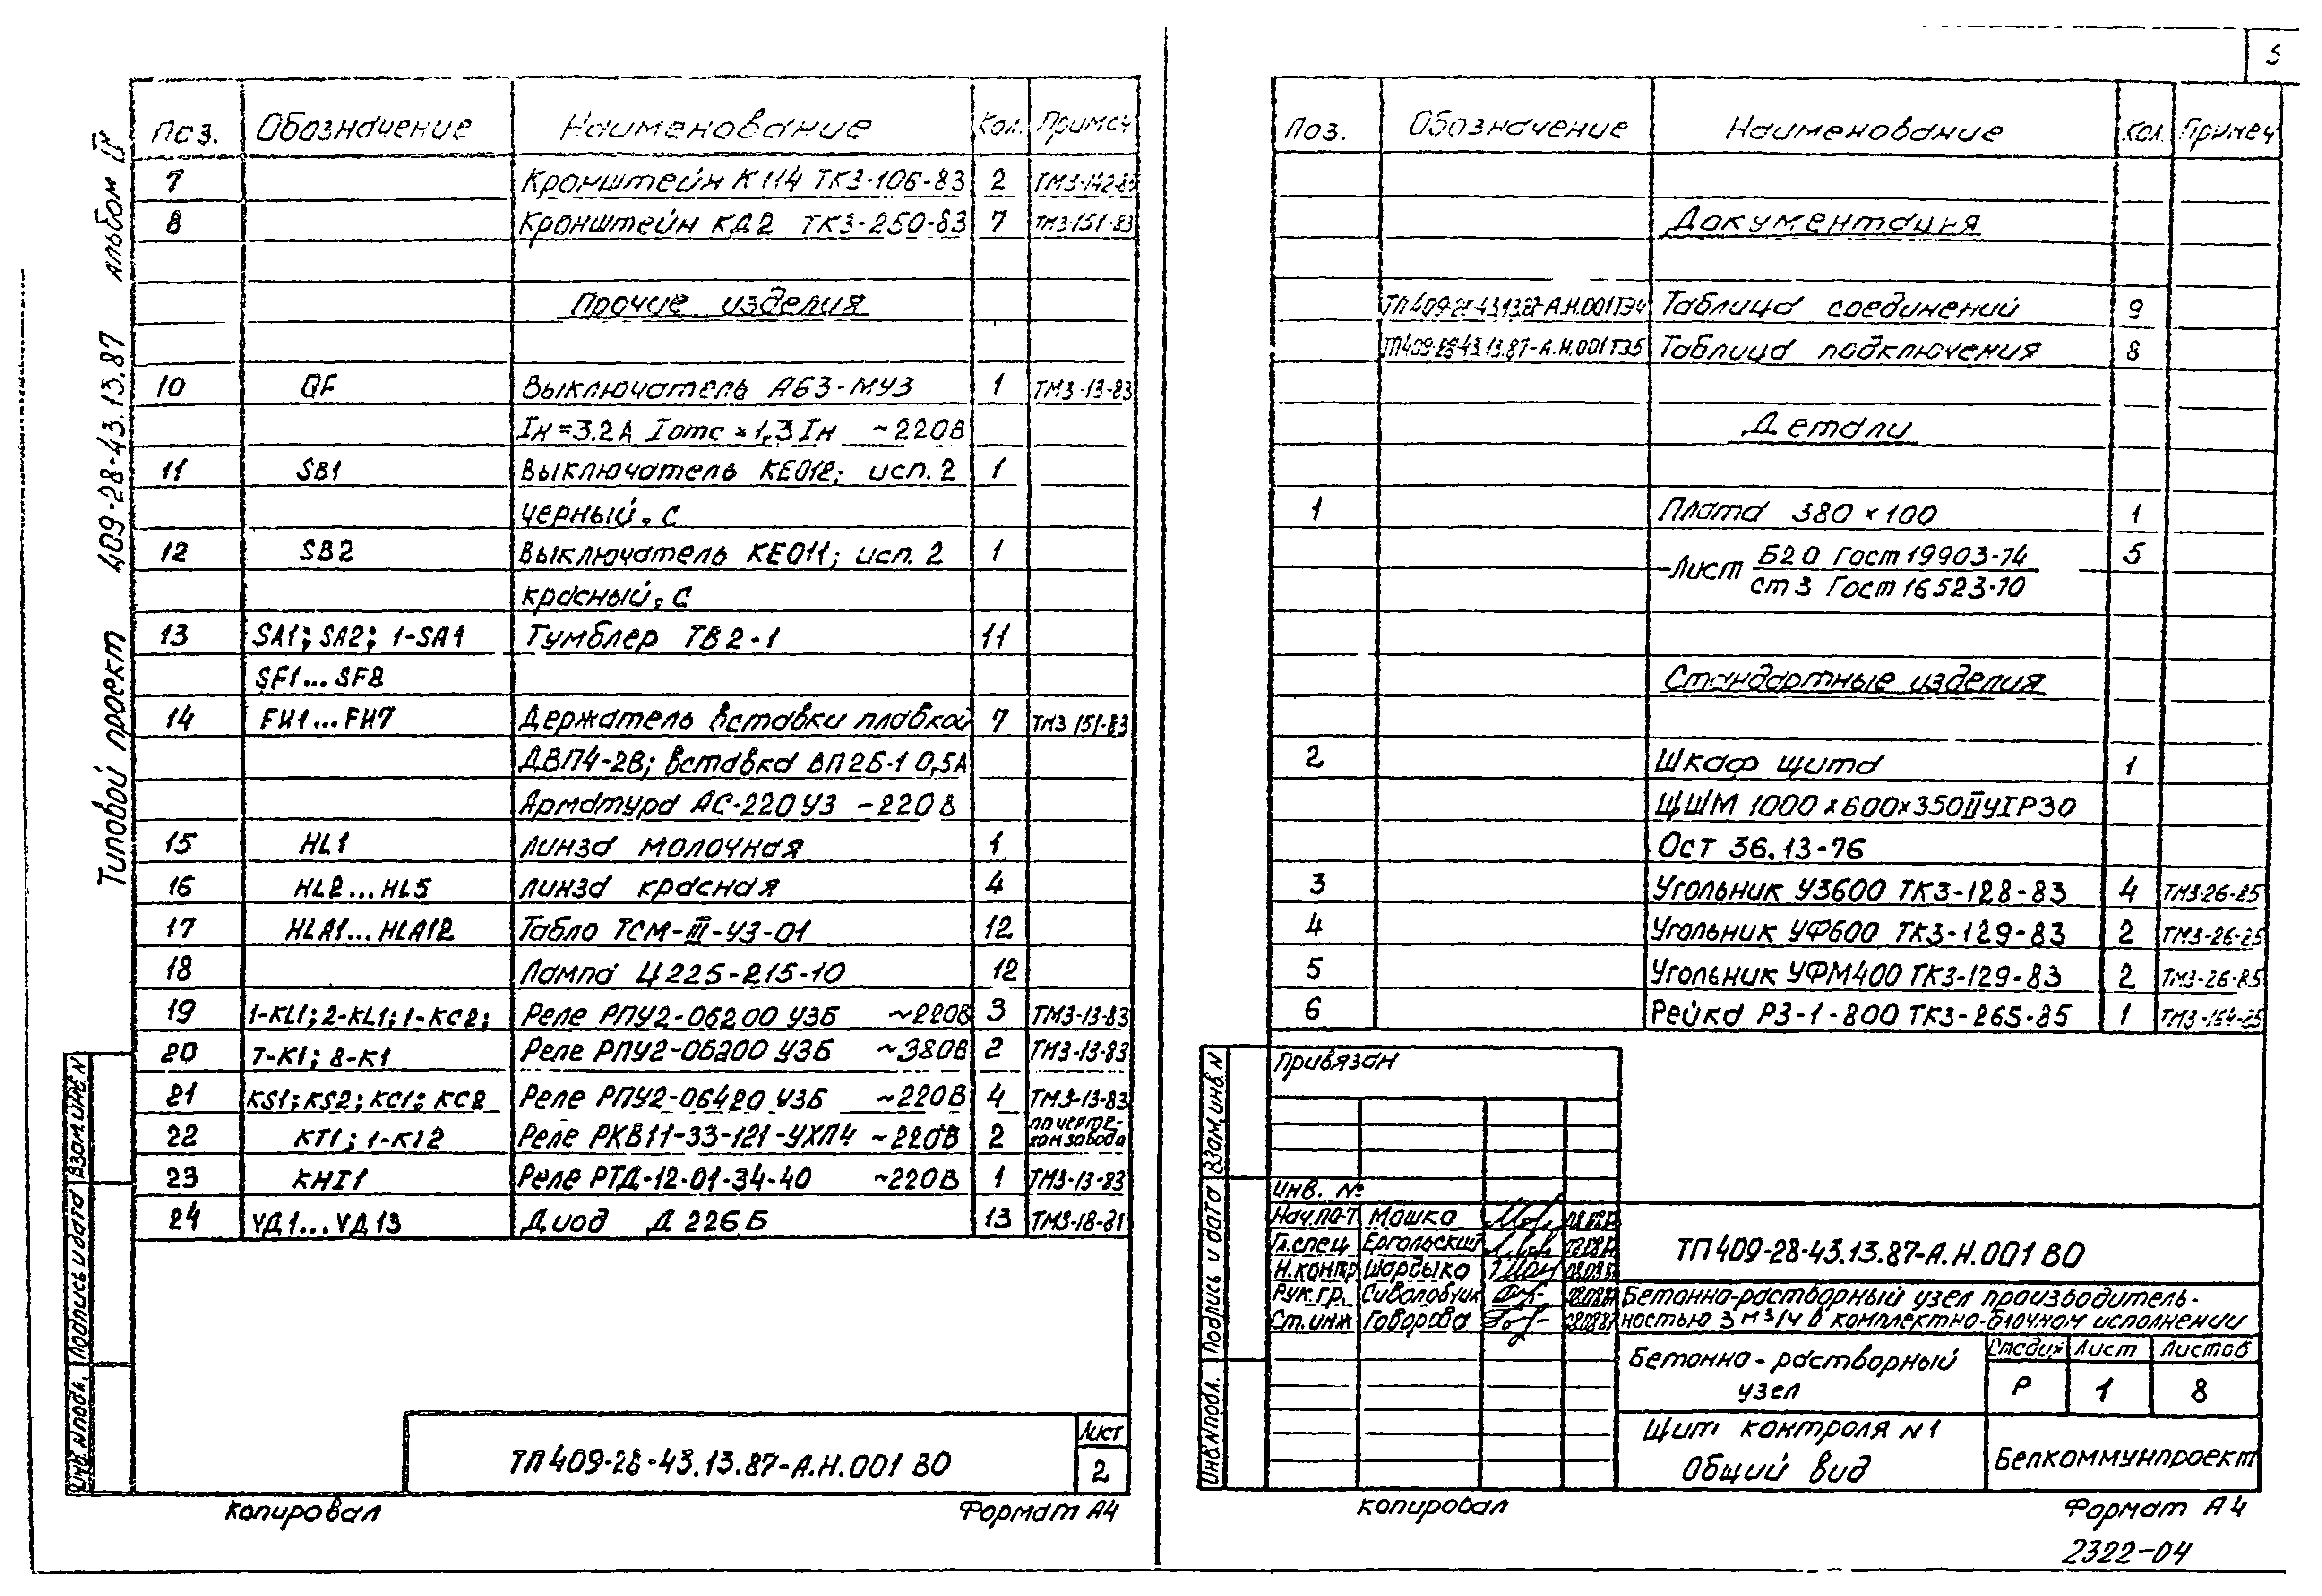 5
Типовой проект 409-28-43.13.87 альбом IV
Поз. Обозначение Наименование Кол. Примеч
7 Кронштейн К114 ТК3-106-83 2 ТМ3-142-83
8 Кронштейн КД2 ТК3-250-83 7 ТМ3-151-83
Прочие изделия
10 QF Выключатель А63-МУ3 1 ТМ3-13-83
Iн=3.2А Iотс=1,3Iн ~220В
11 SB1 Выключатель КЕ012; исп. 2 1
черный. С
12 SB2 Выключатель КЕ011; исп. 2 1
красный. С
13 SA1; SA2; 1-SA1 Тумблер ТВ2-1 11
SF1...SF8
14 FH1...FH7 Держатель вставки плавкой 7 ТМ3 151-83
ДВП4-2В; вставка ВП2Б-1 0,5А
Арматура АС-220У3 ~220В
15 HL1 линза молочная 1
16 HL2...HL5 линза красная 4
17 HLA1...HLA12 Табло ТСМ-III-У3-01 12
18 Лампа Ц225-215-10 12
19 1-KL1; 2-KL1; 1-KC2; Реле РПУ2-06200 У3Б ~220В 3 ТМ3-13-83
20 7-K1; 8-K1 Реле РПУ2-06200 У3Б ~380В 2 ТМ3-13-83
21 KS1; KS2; KC1; KC2 Реле РПУ2-06420 У3Б ~220В 4 ТМ3-13-83
22 KT1; 1-KT2 Реле РКВ11-33-121-УХЛ4 ~220В 2 по черте-
жам завода
23 KHI1 Реле РТД-12-01-34-40 ~220В 1 ТМ3-13-83
24 VД1...VД13 Диод Д226Б 13 ТМ3-18-81
Взам.инв.N
Подпись и дата
Инв.Nподл.
ТП409-28-43.13.87-А.Н.001 ВО
Лист
2
Копировал Формат А4
Поз. Обозначение Наименование Кол. Примеч
Документация
ТП409-28-43.13.87-А.Н.001ТЭ4 Таблица соединений 9
ТП409-28-43.13.87-А.Н.001ТЭ5 Таблица подключения 8
Детали
1 Плата 380×100 1
Лист Б20 Гост 19903-74 5
ст3 Гост 16523-70
Стандартные изделия
2 Шкаф щита 1
ЩШМ 1000×600×350IIУIР30
Ост 36.13-76
3 Угольник У3600 ТК3-128-83 4 ТМ3-26-85
4 Угольник УФ600 ТК3-129-83 2 ТМ3-26-85
5 Угольник УФМ400 ТК3-129-83 2 ТМ3-26-85
6 Рейка Р3-1-800 ТК3-265-85 1 ТМ3-164-85
Привязан
Инв. №
Взам.инв.N
Подпись и дата
Инв.Nподл.
Нач.па-т Мошко 080887
Гл.спец Ергольский 080887
Н.контр Шардыко 080887
Рук.гр. Сиволобчик 080887
Ст.инж Говорова 080887
ТП409-28-43.13.87-А.Н.001 ВО
Бетонно-растворный узел производитель-
ностью 3м³/ч в комплектно-блочном исполнении
Бетонно-растворный
узел
Стадия Лист Листов
Р 1 8
Щит контроля N1
Общий вид
Белкоммунпроект
Копировал Формат А4
2322-04